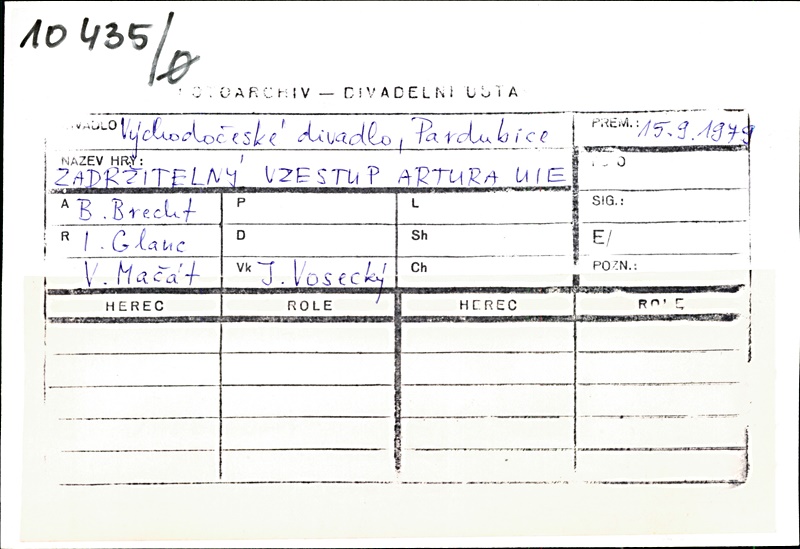 10 435/0
FOTOARCHIV — DIVADELNÍ ÚSTA
DIVADLO Východočeské divadlo, Pardubice PREM.: 15.9.1979
NÁZEV HRY:
ZADRŽITELNÝ VZESTUP ARTURA UIE
A B. Brecht P L SIG.:
R I. Glanc D Sh E/
V. Mačát Vk J. Vosecký Ch POZN.:
HEREC ROLE HEREC ROLE